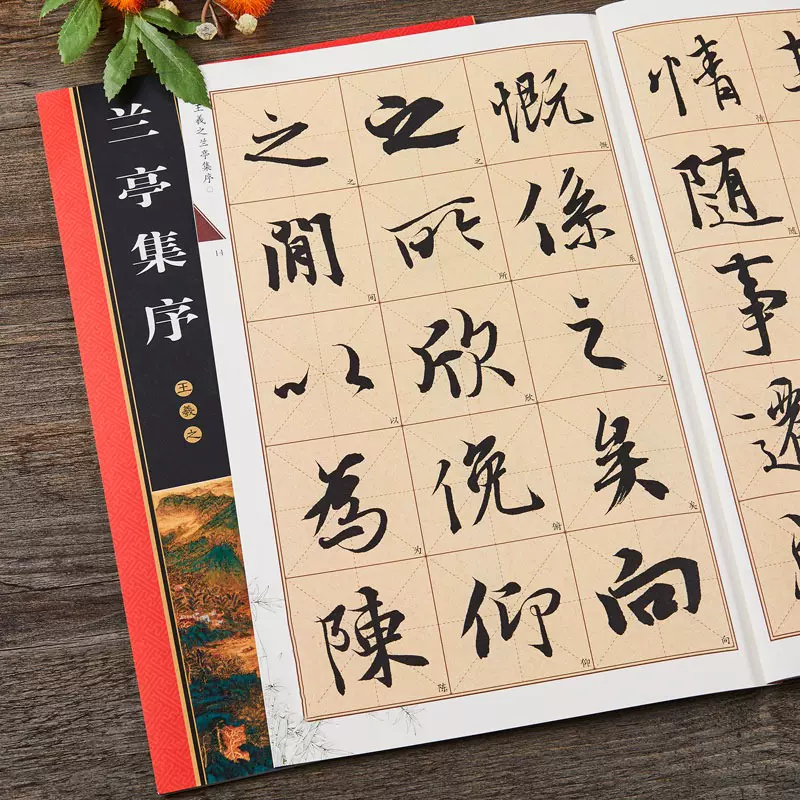 兰亭集序
王羲之
王羲之兰亭集序
14
情随事遷
情随
慨係之矣向
慨系之矣向
之所欣俛仰
之所欣俯仰
之間以為陳
之间以为陈